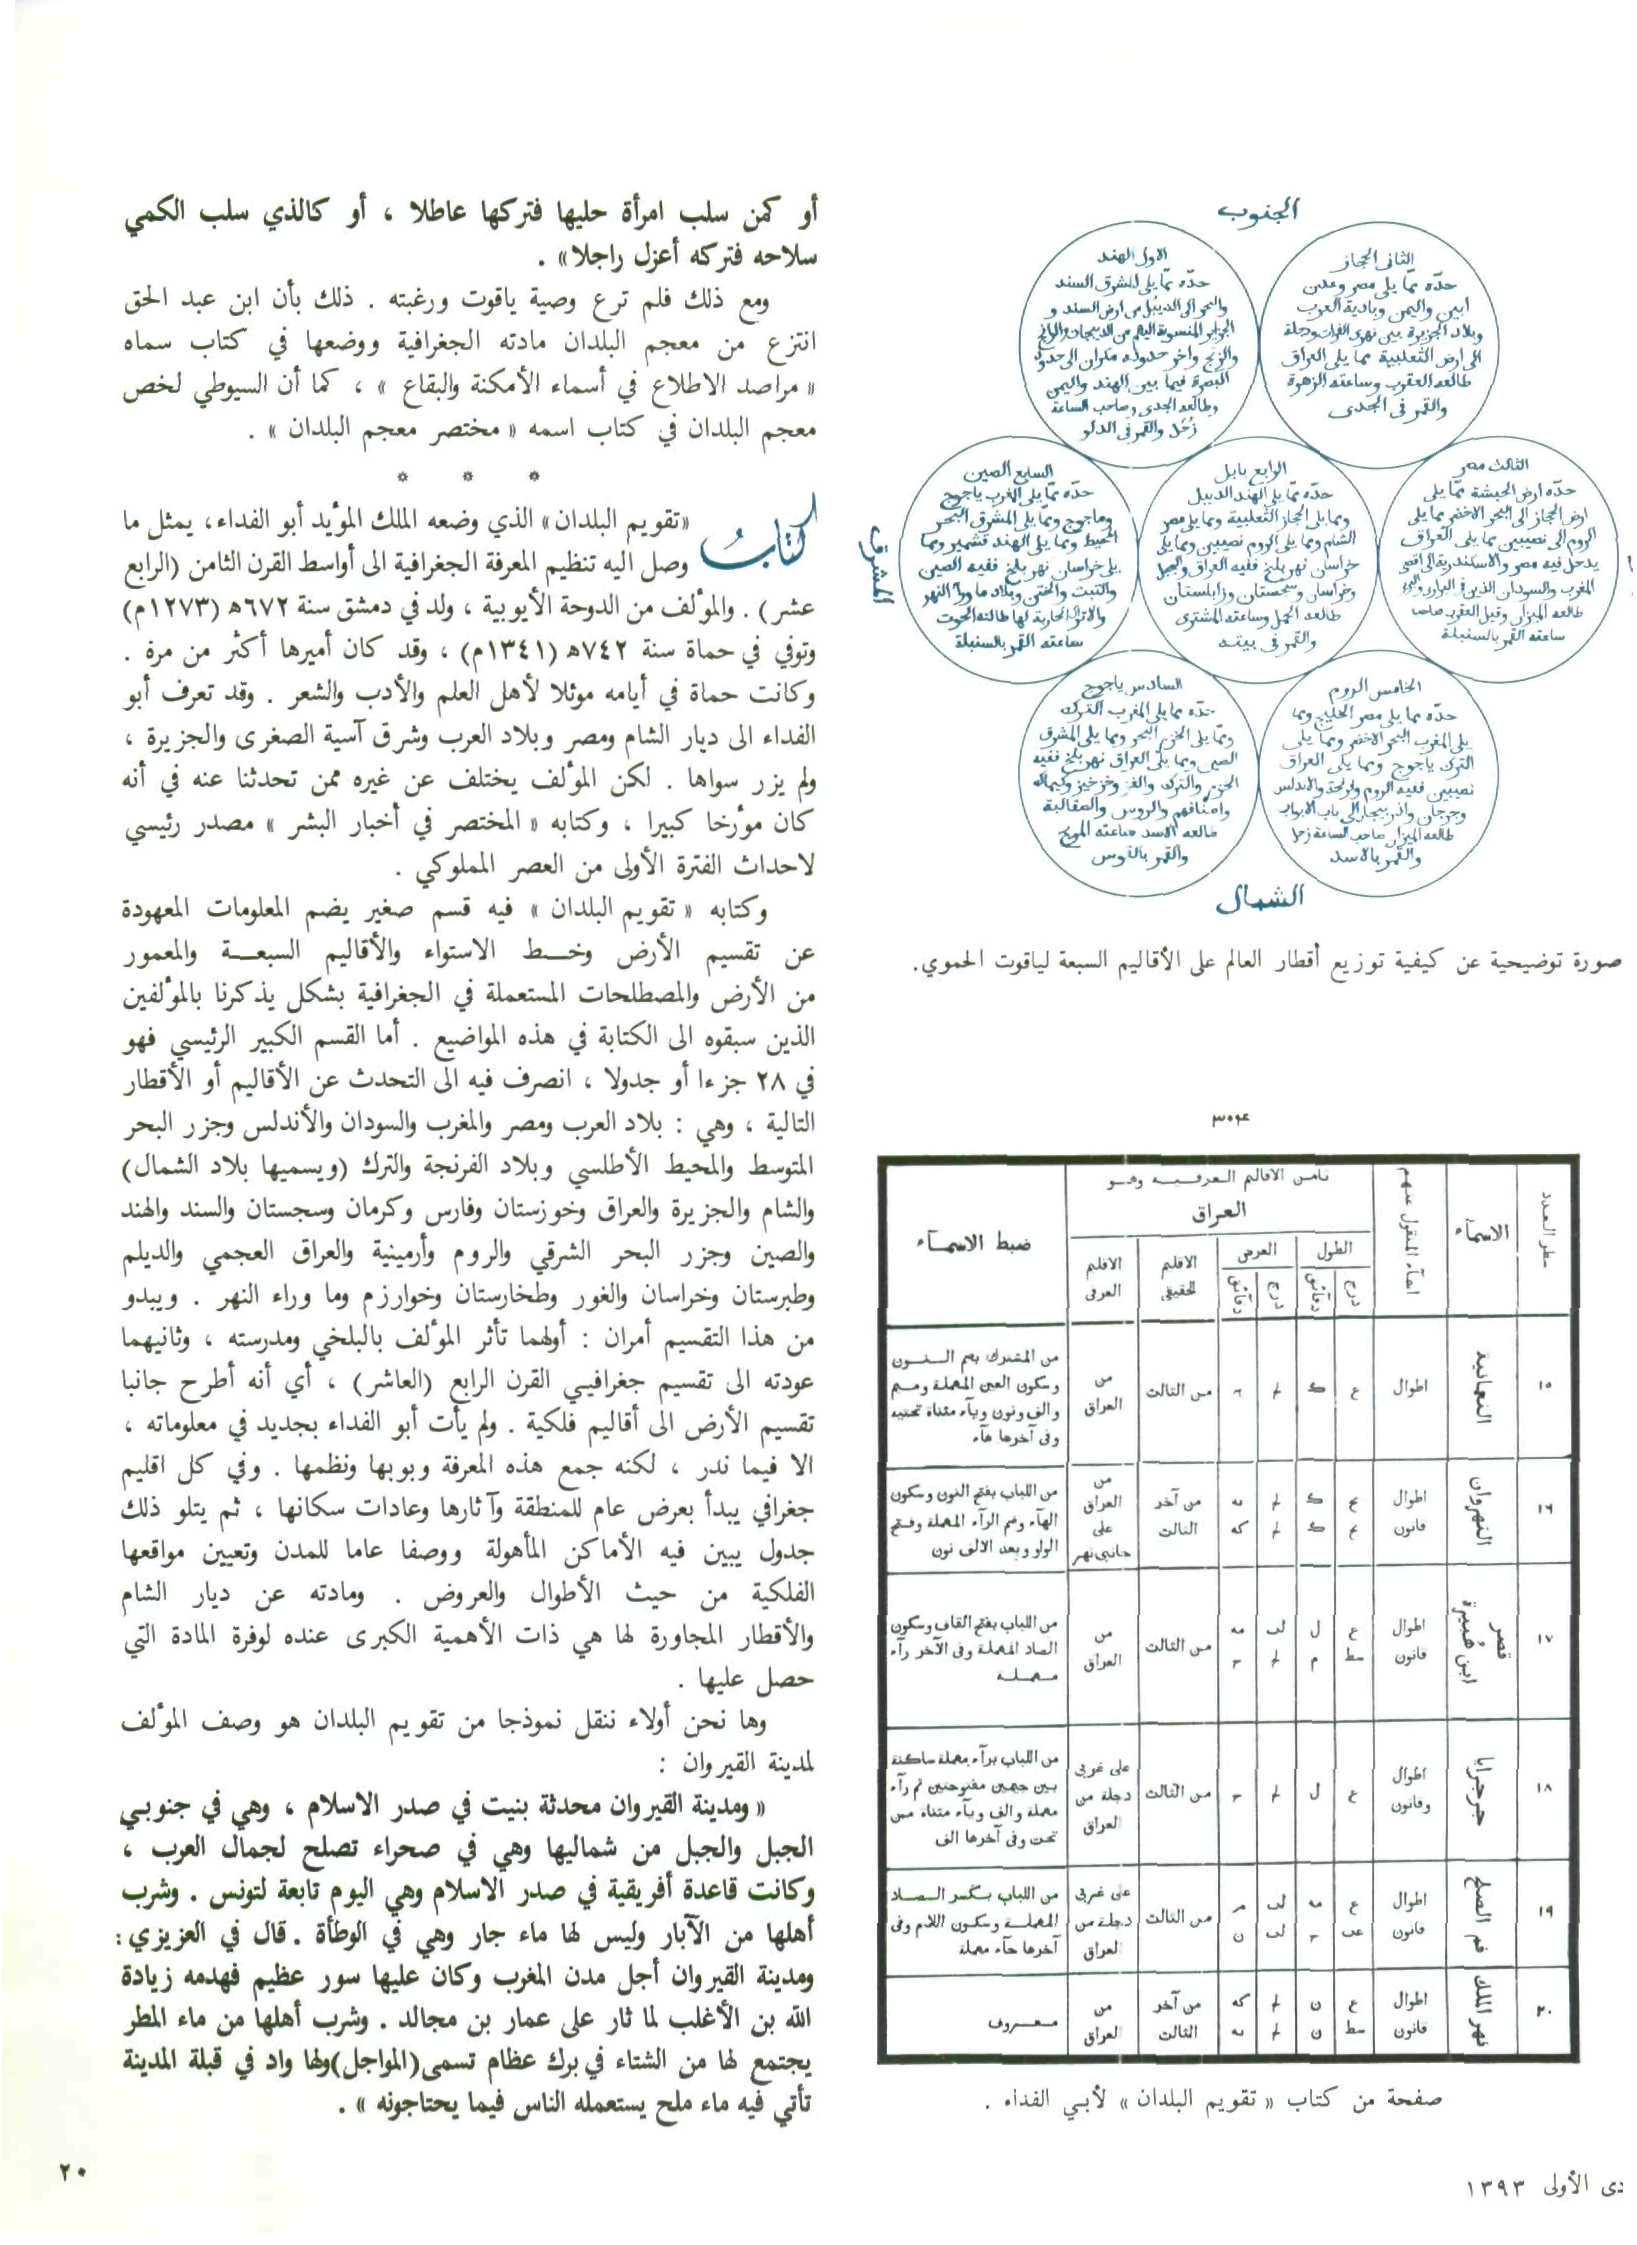 الجنوب
الثاني الحجاز
حدّه ممّا يلي مصر وعدن
ابين واليمن وبادية العرب
وبلاد الجزيرة بين نهري الفرات ودجلة
الى ارض الثعلبية مما يلي العراق
طالعه العقرب وساعته الزهرة
والقمر في الجدي
الاول الهند
حدّه ممّا يلي المشرق السند
والبحر الى الديبل من ارض السند و
والزنج وآخر حدوده مكران الى حدود
البصرة فيما بين الهند واليمن
وطالعه الجدي وصاحب الساعة
زحل والقمر في الدلو
الثالث مصر
حدّه ارض الحبشة ممّا يلي
ارض الحجاز الى البحر الاخضر مما يلي
الروم الى نصيبين مما يلي العراق
يدخل فيه مصر والاسكندرية الى اقصى
المغرب والسودان الذين في البراري والبر
طالعه الميزان وقيل العقرب صاحب
ساعته القمر بالسنبلة
الرابع بابل
حدّه ممّا يلي الهند الديبل
ومما يلي الحجاز الثعلبية ومما يلي مصر
الشام ومما يلي الروم نصيبين ومما يلي
خراسان نهر بلخ ففيه العراق والجبل
وخراسان وسجستان وزابلستان
طالعه الحمل وساعته المشتري
والقمر في بيته
السابع الصين
حدّه ممّا يلي الغرب ياجوج
وماجوج ومما يلي المشرق البحر
المحيط ومما يلي الهند قشمير ومما
يلي خراسان نهر بلخ ففيه الصين
والتبت والختن وبلاد ما وراء النهر
ساعته القمر بالسنبلة
المشرق
الخامس الروم
حدّه مما يلي مصر الخليج ومما
يلي المغرب البحر الاخضر ومما يلي
الترك ياجوج ومما يلي العراق
نصيبين ففيه الروم وافرنجة والاندلس
وجرجان واذربيجان الى باب الابواب
طالعه الميزان صاحب الساعة زحل
والقمر بالاسد
السادس ياجوج
حدّه مما يلي المغرب الترك
ومما يلي الخزر البحر ومما يلي المشرق
الصين ومما يلي العراق نهر بلخ ففيه
الخزر والترك والغز وخرخيز وكيماك
واصنافهم والروس والصقالبة
طالعه الاسد ساعته المريخ
والقمر بالقوس
الشمال
صورة توضيحية عن كيفية توزيع أقطار العالم على الأقاليم السبعة لياقوت الحموي.
سطر العدد
الاسمآء
اسمآء المنقول عنهم
ثامن الاقاليم العرفيـة وهـو
العراق
الطول
العرض
درج
دقآئق
درج
دقآئق
الاقليم الحقيقي
الاقليم العرفي
ضبط الاسمـآء
١٥
النعمانية
اطوال
من الثالث
من العراق
من المشترك بضم النـون
وسكون العين المهملة وميم
والف ونون ويآء مثناة تحتيه
وفى آخرها هآء
١٦
النهروان
اطوال
قانون
من آخر
الثالث
من
العراق
على
جانبي نهر
من اللباب بفتح النون وسكون
الهآء وضم الرآء المهملة وفتح
الواو وبعد الالف نون
١٧
قصر
ابن هبيرة
اطوال
قانون
من الثالث
من
العراق
من اللباب بفتح القاف وسكون
الصاد المهملة وفى الآخر رآء
مهملة
١٨
جرجرايا
اطوال
وقانون
من الثالث
على غربي
دجلة من
العراق
من اللباب برآء مهملة ساكنة
بين جيمين مفتوحتين ثم رآء
مهملة والف ويآء مثناة من
تحت وفى آخرها الف
١٩
فم الصلح
اطوال
قانون
من الثالث
على غربي
دجلة من
العراق
من اللباب بكسر الصاد
المهملة وسكون اللام وفى
آخرها حآء مهملة
٢٠
نهر الملك
اطوال
قانون
من آخر
الثالث
من
العراق
معروف
صفحة من كتاب « تقويم البلدان » لأبي الفداء .
دى الأولى ١٣٩٣
أو كمن سلب امرأة حليها فتركها عاطلا ، أو كالذي سلب الكمي
سلاحه فتركه أعزل راجلا» .
ومع ذلك فلم ترع وصية ياقوت ورغبته . ذلك بأن ابن عبد الحق
انتزع من معجم البلدان مادته الجغرافية ووضعها في كتاب سماه
« مراصد الاطلاع في أسماء الأمكنة والبقاع » ، كما أن السيوطي لخص
معجم البلدان في كتاب اسمه « مختصر معجم البلدان » .
* * *
كتابُ «تقويم البلدان» الذي وضعه الملك المؤيد أبو الفداء، يمثل ما
وصل اليه تنظيم المعرفة الجغرافية الى أواسط القرن الثامن (الرابع
عشر) . والمؤلف من الدوحة الأيوبية ، ولد في دمشق سنة ٦٧٢ه (١٢٧٣م)
وتوفي في حماة سنة ٧٤٢ه (١٣٤١م) ، وقد كان أميرها أكثر من مرة .
وكانت حماة في أيامه موئلا لأهل العلم والأدب والشعر . وقد تعرف أبو
الفداء الى ديار الشام ومصر وبلاد العرب وشرق آسية الصغرى والجزيرة ،
ولم يزر سواها . لكن المؤلف يختلف عن غيره ممن تحدثنا عنه في أنه
كان مؤرخا كبيرا ، وكتابه « المختصر في أخبار البشر » مصدر رئيسي
لاحداث الفترة الأولى من العصر المملوكي .
وكتابه « تقويم البلدان » فيه قسم صغير يضم المعلومات المعهودة
عن تقسيم الأرض وخـط الاستواء والأقاليم السبعـة والمعمور
من الأرض والمصطلحات المستعملة في الجغرافية بشكل يذكرنا بالمؤلفين
الذين سبقوه الى الكتابة في هذه المواضيع . أما القسم الكبير الرئيسي فهو
في ٢٨ جزءا أو جدولا ، انصرف فيه الى التحدث عن الأقاليم أو الأقطار
التالية ، وهي : بلاد العرب ومصر والمغرب والسودان والأندلس وجزر البحر
المتوسط والمحيط الأطلسي وبلاد الفرنجة والترك (ويسميها بلاد الشمال)
والشام والجزيرة والعراق وخوزستان وفارس وكرمان وسجستان والسند والهند
والصين وجزر البحر الشرقي والروم وأرمينية والعراق العجمي والديلم
وطبرستان وخراسان والغور وطخارستان وخوارزم وما وراء النهر . ويبدو
من هذا التقسيم أمران : أولهما تأثر المؤلف بالبلخي ومدرسته ، وثانيهما
عودته الى تقسيم جغرافيي القرن الرابع (العاشر) ، أي أنه أطرح جانبا
تقسيم الأرض الى أقاليم فلكية . ولم يأت أبو الفداء بجديد في معلوماته ،
الا فيما ندر ، لكنه جمع هذه المعرفة وبوبها ونظمها . وفي كل اقليم
جغرافي يبدأ بعرض عام للمنطقة وآثارها وعادات سكانها ، ثم يتلو ذلك
جدول يبين فيه الأماكن المأهولة ووصفا عاما للمدن وتعيين مواقعها
الفلكية من حيث الأطوال والعروض . ومادته عن ديار الشام
والأقطار المجاورة لها هي ذات الأهمية الكبرى عنده لوفرة المادة التي
حصل عليها .
وها نحن أولاء ننقل نموذجا من تقويم البلدان هو وصف المؤلف
لمدينة القيروان :
« ومدينة القيروان محدثة بنيت في صدر الاسلام ، وهي في جنوبي
الجبل والجبل من شماليها وهي في صحراء تصلح لجمال العرب ،
وكانت قاعدة أفريقية في صدر الاسلام وهي اليوم تابعة لتونس . وشرب
أهلها من الآبار وليس لها ماء جار وهي في الوطأة . قال في العزيزي :
ومدينة القيروان أجل مدن المغرب وكان عليها سور عظيم فهدمه زيادة
الله بن الأغلب لما ثار على عمار بن مجالد . وشرب أهلها من ماء المطر
يجتمع لها من الشتاء في برك عظام تسمى (المواجل) ولها واد في قبلة المدينة
تأتي فيه ماء ملح يستعمله الناس فيما يحتاجونه » .
٢٠